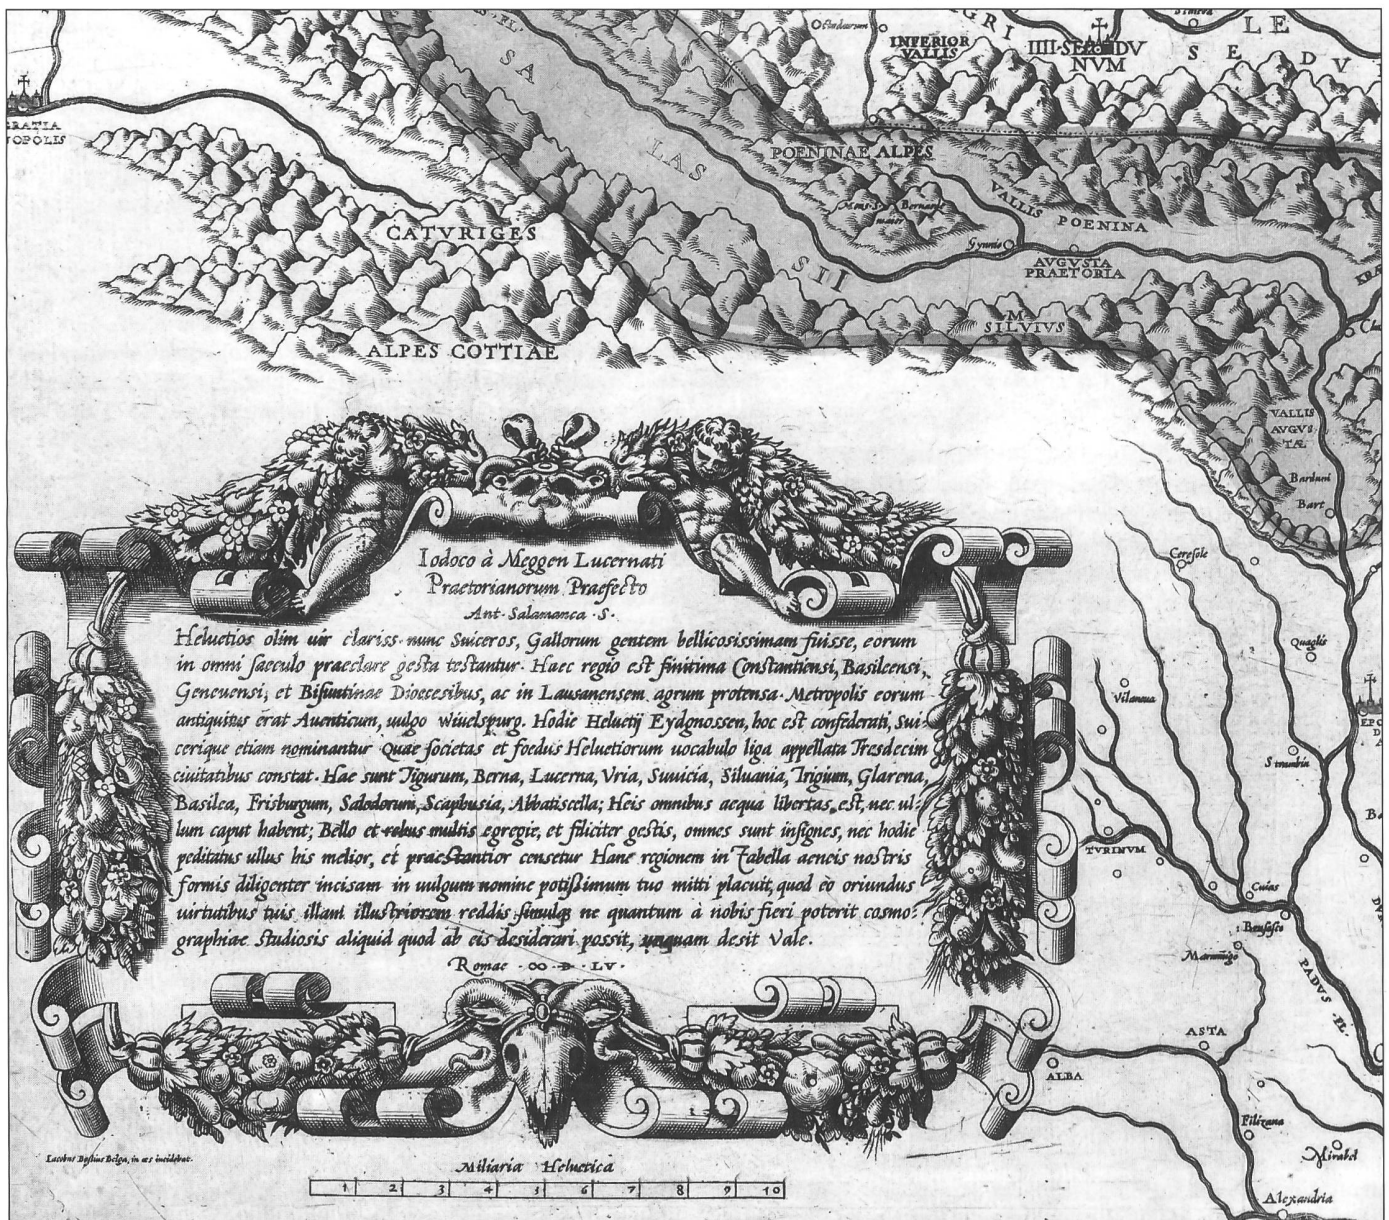 Octodurum
INFERIOR
VALLIS
IIII·SEDV
NVM
LE
S E D V
GRI
S·FL·
SA
LAS
SII
GRATIA
NOPOLIS
POENINAE ALPES
Mons S. Bernardi
maior
VALLIS
POENINA
Gynnio
AVGVSTA
PRAETORIA
CATVRIGES
M·
SILVIVS
ALPES COTTIAE
VALLIS
AVGVS
TÆ
Barduni
Bart
Ceresole
Quaglis
Vilanoua
Strambin
TVRINVM
Cuias
Bensasco
Marumigo
PADVS·FL·
ASTA
ALBA
Filizana
Mirabel
Alexandria
Iodoco à Meggen Lucernati
Praetorianorum Praefecto
Ant·Salamanca·S·
Heluetios olim uir clariss·nunc Suiceros, Gallorum gentem bellicosissimam fuisse, eorum
in omni saeculo praeclare gesta testantur· Haec regio est finitima Constantiensi, Basileensi,
Geneuensi, et Bisuntinae Dioecesibus, ac in Lausanensem agrum protensa· Metropolis eorum
antiquitus erat Auenticum, uulgo wiuelspurg· Hodie Heluetij Eydgnossen, hoc est confederati, Sui-
cerique etiam nominantur Quae societas et foedus Heluetiorum uocabulo liga appellata Tresdecim
ciuitatibus constat· Hae sunt Tigurum, Berna, Lucerna, Vria, Suuicia, Siluania, Trigium, Glarena,
Basilea, Frisburgum, Salodorum, Scaphusia, Abbatiscella; Heis omnibus aequa libertas est, nec ul-
lum caput habent; Bello et rebus multis egregie, et filiciter gestis, omnes sunt insignes, nec hodie
peditatus ullus his melior, et praestantior censetur Hanc regionem in Tabella aeneis nostris
formis diligenter incisam in uulgum nomine potissimum tuo mitti placuit, quod eò oriundus
uirtutibus tuis illam illustriorem reddis simulq; ne quantum à nobis fieri poterit cosmo-
graphiae studiosis aliquid quod ab eis desiderari possit, unquam desit Vale·
Romae ·∞·D·LV·
Iacobus Bossius Belga, in æs incidebat·
Miliaria Heluetica
1 2 3 4 5 6 7 8 9 10